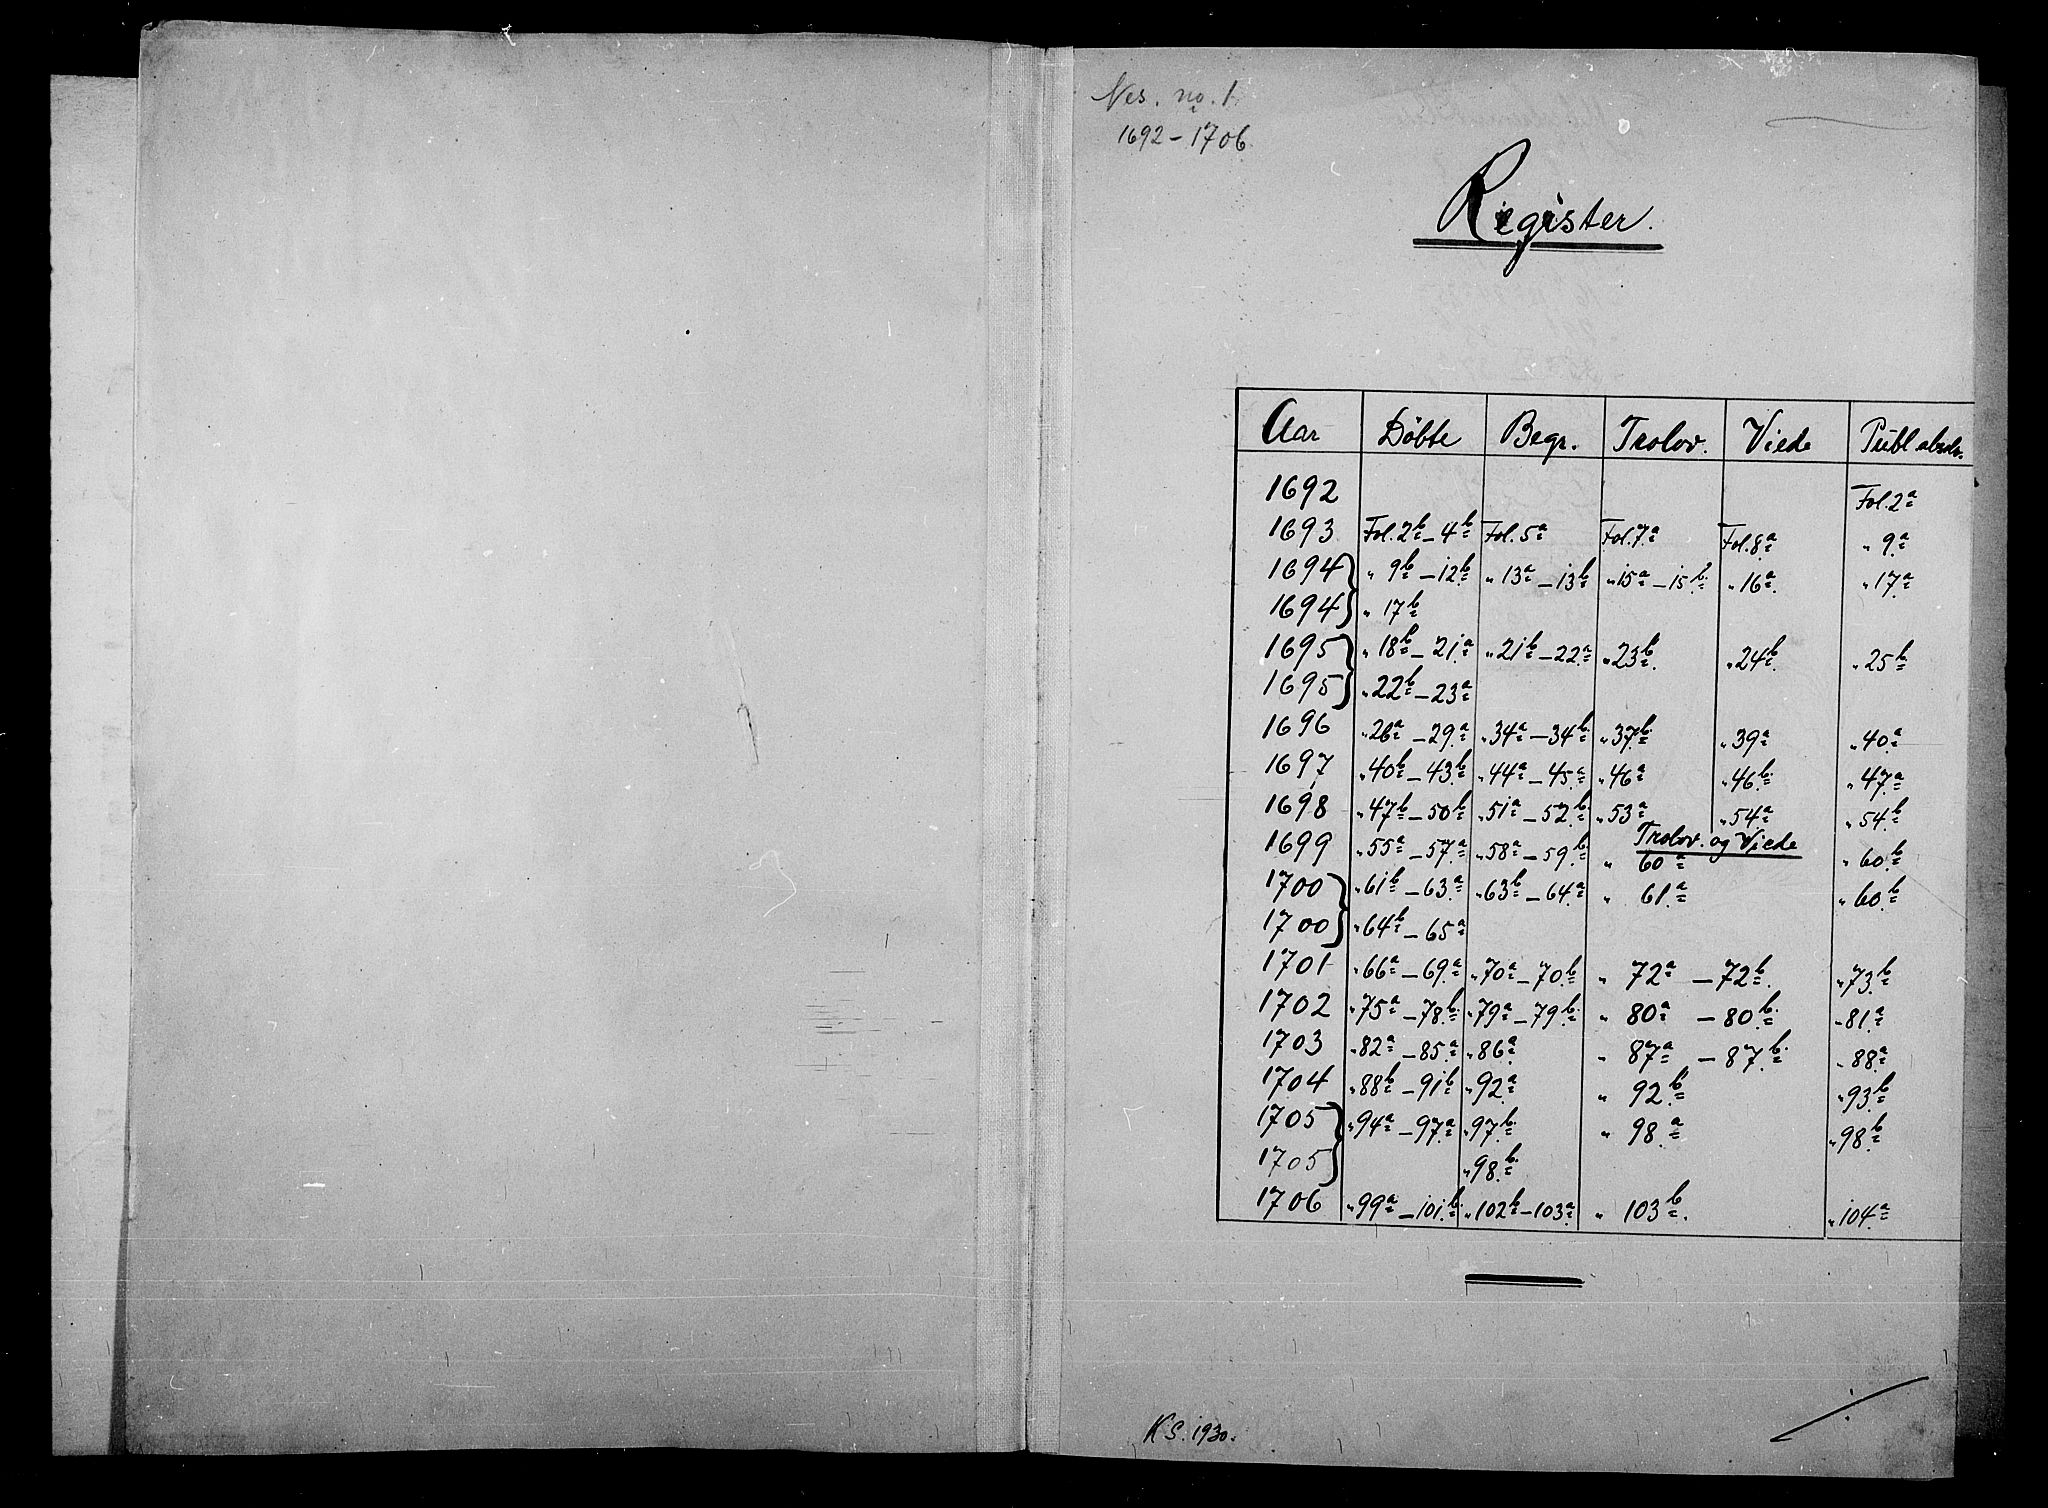 Nes. no. 1.
1692-1706.
Register.
Aar Döbte Begr. Trolov. Viede Publ absolv.
1692 Fol. 2a
1693 Fol. 2b-4b Fol. 5a Fol. 7a Fol. 8a " 9a
1694 " 9b-12b " 13a-13b " 15a-15b " 16a " 17a
1694 " 17b
1695 " 18b-21a " 21b-22a " 23b " 24b " 25b
1695 " 22b-23a
1696 " 26a-29a " 34a-34b " 37b " 39a " 40a
1697 " 40b-43b " 44a-45a " 46a " 46b " 47a
1698 " 47b-50b " 51a-52b " 53a " 54a " 54b
Trolov. og Viede
1699 " 55a-57a " 58a-59b " 60a " 60b
1700 " 61b-63a " 63b-64a " 61a " 60b
1700 " 64b-65a
1701 " 66a-69a " 70a-70b " 72a-72b " 73b
1702 " 75a-78b " 79a-79b " 80a-80b " 81a
1703 " 82a-85a " 86a " 87a-87b " 88a
1704 " 88b-91b " 92a " 92b " 93b
1705 " 94a-97a " 97b " 98a " 98b
1705 " 98b
1706 " 99a-101b " 102b-103a " 103b " 104a
K S. 1930.